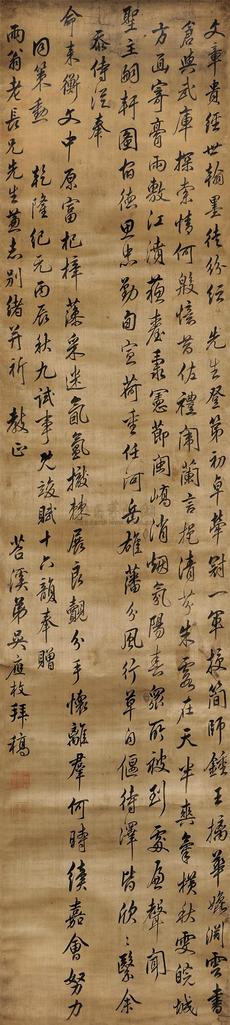 文章貴經世翰墨徒紛紜 先生登第初卓犖冠一軍投簡師鍾王摛華媲淵雲書
倉與武庫探索情何殷憶昔佐禮闈蘭言挹清芬朱霞在天半爽氣橫秋雯皖城
方面寄膏雨敷江濆蘇臺肅憲節閩嶠消烟氛陽春眾所被到處展聲聞
聖主嗣軒圖舊德思忠勤旬宣荷重任河岳雄藩分風行草自偃待澤皆欣欣繄余
忝侍從奉
命來衡文中原富杞梓藻采迷氤氳撤棘展良覿分手懷離羣何時續嘉會努力
同策勳 乾隆紀元丙辰秋九試事既竣賦十六韻奉贈
雨翁老長兄先生兼志別緒并祈 教正 苕溪弟吳應枚拜稿